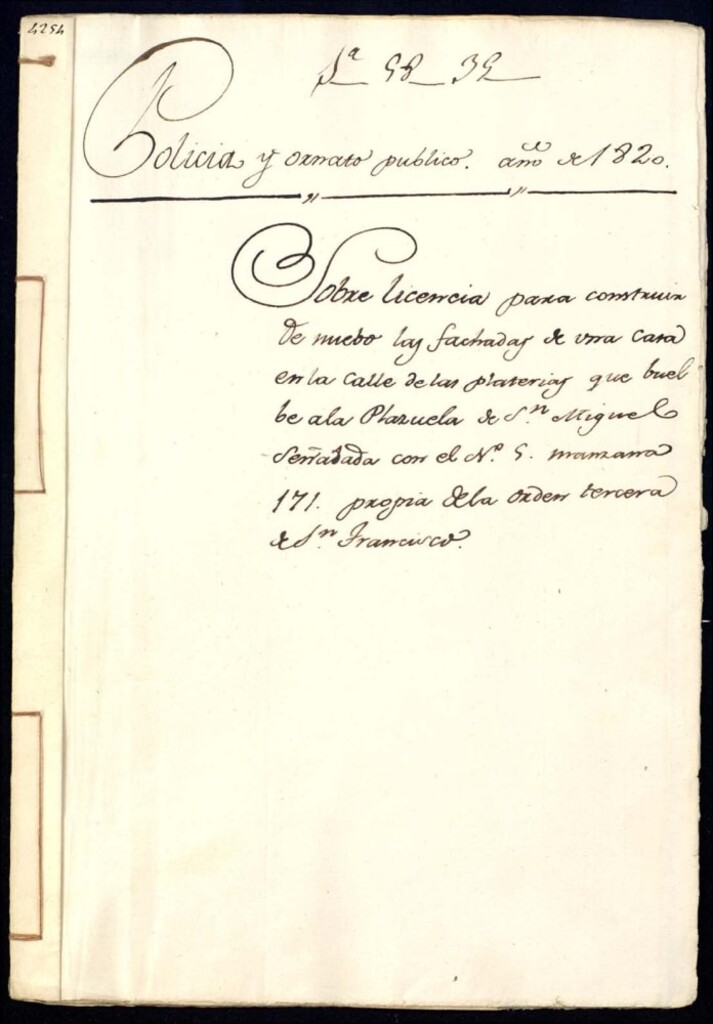 4254
1ª 58 35
Policia y ornato publico. año de 1820.
Sobre licencia para construir
de nuebo las fachadas de vna casa
en la Calle de las platerias que buel
be ala Plazuela de Sn. Miguel
señalada con el Nº. 5. manzana
171. propia dela orden tercera
de Sn. Francisco.